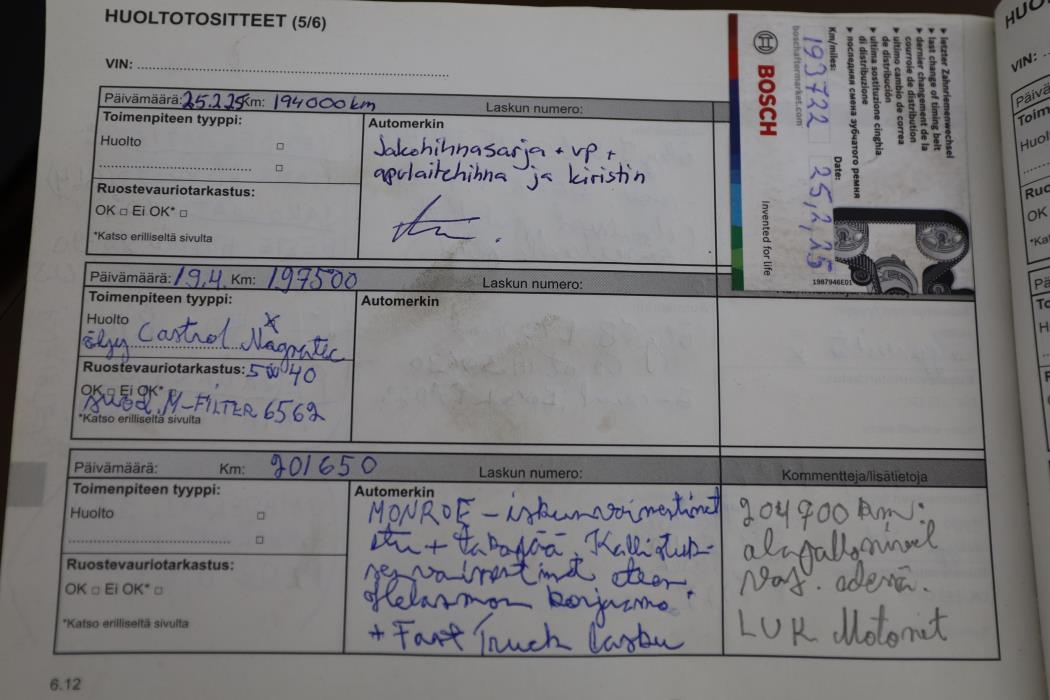 HUOLTOTOSITTEET (5/6)
VIN:
Päivämäärä: 25.2.25 Km: 194000 km Laskun numero:
Toimenpiteen tyyppi:
Huolto
Ruostevauriotarkastus:
OK □ Ei OK* □
*Katso erilliseltä sivulta
Automerkin
Jakohihnasarja + vp +
apulaitehihna ja kiristin
▸ letzter Zahnriemenwechsel
▸ last change of timing belt
▸ dernier changement de la
courroie de distribution
▸ ultimo cambio de correa
de distribución
▸ ultima sostituzione cinghia
di distribuzione
▸ последняя смена зубчатого ремня
Km/miles: 193722 Date: 25,2,25
boschaftermarket.com
BOSCH
Invented for life
1987946E01
Päivämäärä: 19.4. Km: 197500 Laskun numero:
Toimenpiteen tyyppi:
Huolto X
öljy Castrol Magnatec
Ruostevauriotarkastus: 5W40
OK □ Ei OK* □
suod. M-FILTER 6562
*Katso erilliseltä sivulta
Automerkin
Päivämäärä: Km: 201650 Laskun numero: Kommentteja/lisätietoja
Toimenpiteen tyyppi:
Huolto
Ruostevauriotarkastus:
OK □ Ei OK* □
*Katso erilliseltä sivulta
Automerkin
MONROE – iskunvaimentimet
etu + takapää.
korjaamo
+ Fast Truck lasku
204700 km:
alapallonivel
vas. edessä.
LUK Motonet
6.12
HUO
VIN: